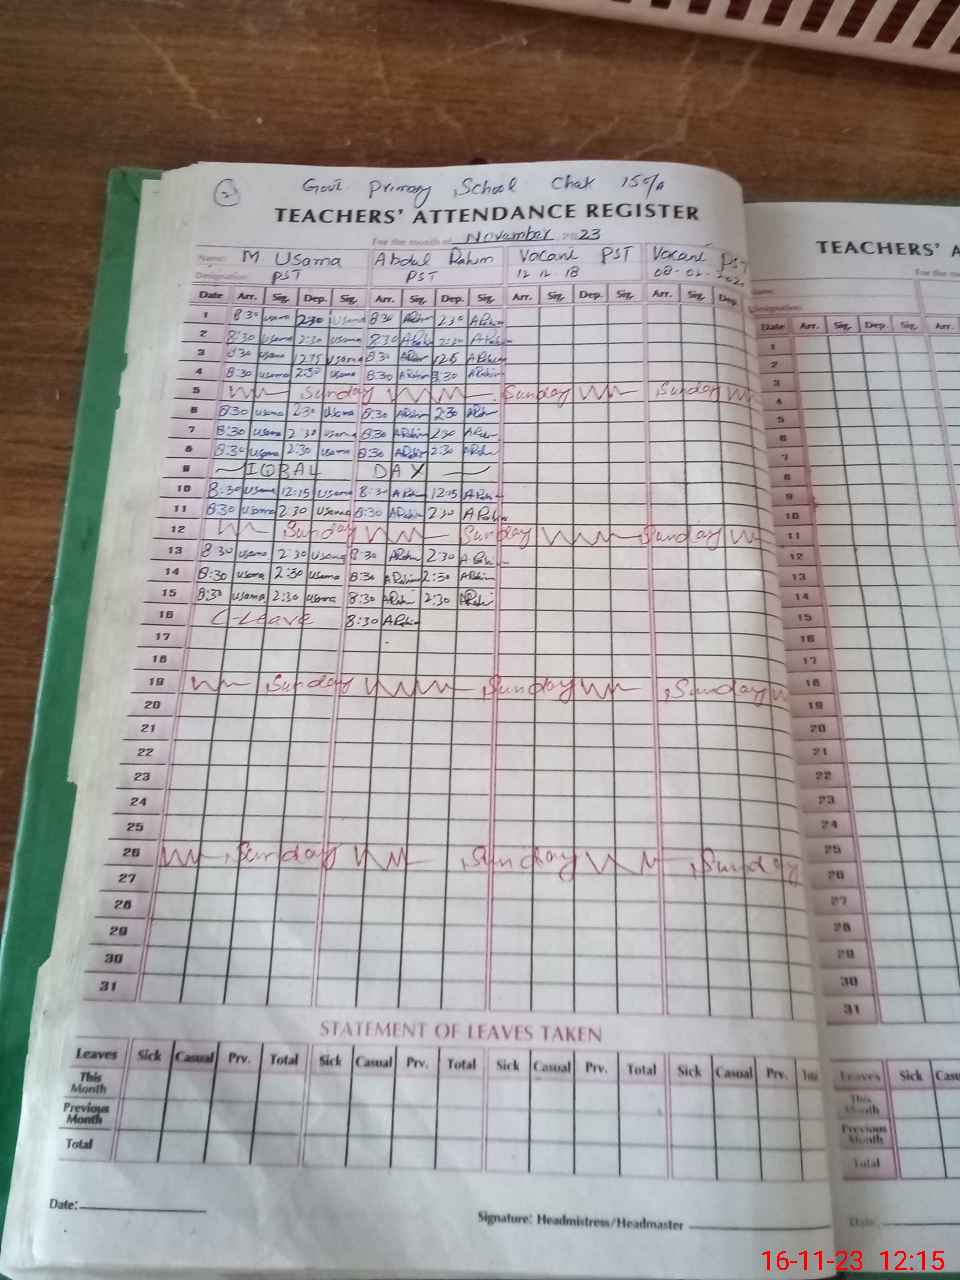 2
Govt. Primary School Chak 15
TEACHERS' ATTENDANCE REGISTER
TEACHERS' A
For the month of November 2023
Name: M. Usama Abdul Rahim Vacant PST Vacant PST
Designation: PST PST 12 12 18 08-02-
Date Arr. Sig. Dep. Sig. Arr. Sig. Dep. Sig. Arr. Sig. Dep. Sig. Arr. Sig. Dep.
1 8 30 Usama 2:30 Usama 8:30 ARahim 2:30 ARahim
2 8:30 Usama 2:30 Usama 8:30 ARahim 2:30 ARahim
3 8:30 Usama 12:15 Usama 8:30 ARahim 12:15 ARahim
4 8:30 Usama 2:30 Usama 8:30 ARahim ARahim
5 Sunday Sunday Sunday
6 8:30 Usama 2:30 Usama 8:30 ARahim 2:30 ARahim
7 8:30 Usama 2:30 Usama 8:30 ARahim 2:30 ARahim
8 8:30 Usama 2:30 Usama 8:30 ARahim 2:30 ARahim
9 IQBAL DAY
10 8:30 Usama 12:15 Usama 8:30 ARahim 12:15 ARahim
11 8:30 Usama 2:30 Usama 8:30 ARahim 2:30 ARahim
12 Sunday Sunday Sunday
13 8 30 Usama 2:30 Usama 8:30 ARahim 2:30 ARahim
14 8:30 Usama 2:30 Usama 8:30 ARahim 2:30 ARahim
15 8:30 Usama 2:30 Usama 8:30 ARahim 2:30 ARahim
16 C-Leave 8:30 ARahim
17
18
19 Sunday Sunday Sunday
20
21
22
23
24
25
26 Sunday Sunday Sunday
27
28
29
30
31
STATEMENT OF LEAVES TAKEN
Leaves Sick Casual Prv. Total Sick Casual Prv. Total Sick Casual Prv. Total Sick Casual Prv.
This Month
Previous Month
Total
Date:
Signature: Headmistress/Headmaster
Date Arr. Sig. Dep. Sig. Arr.
1
2
3
4
5
6
7
8
9
10
11
12
13
14
15
16
17
18
19
20
21
22
23
24
25
26
27
28
29
30
31
Leaves Sick Cas
This Month
Previous Month
Total
Date:
16-11-23 12:15